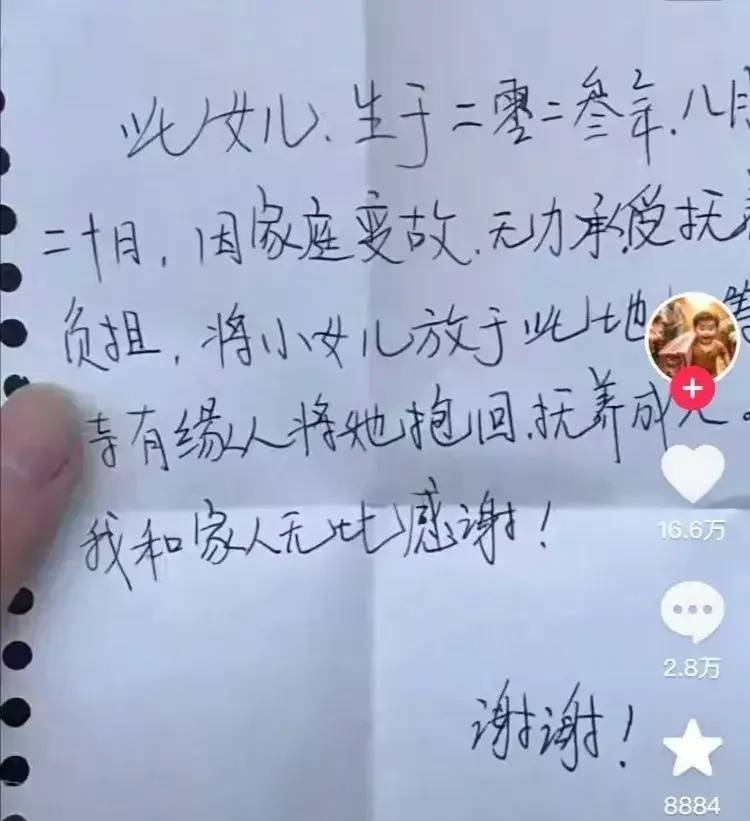 此女儿、生于二零二叁年.八月
二十日,因家庭变故.无力承受抚养
负担,将小女儿放于此地
有缘人将她抱回.抚养成人。
我和家人无比感谢!
谢谢!
16.6万
2.8万
8884